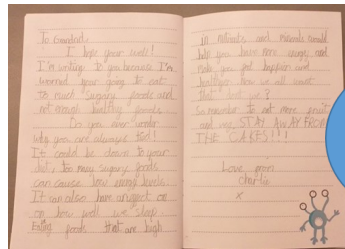 To Grandad,
I hope your well!
I'm writing to you because I'm
worried your going to eat
to much sugary foods and
not enough healthy foods.
Do you ever wonder
why you are always tired!
It could be down to your
diet, too many sugary foods
can cause low energy levels.
It can also have an affect on
on how well we sleep.
Eating foods that are high
in nutrients, and minerals would
help you have more energy and
make you feel happier and
healthier. Now we all want
that don't we?
So remember to eat more fruit
and veg STAY AWAY FROM
THE CAKES!!!
Love from
Charlie
x